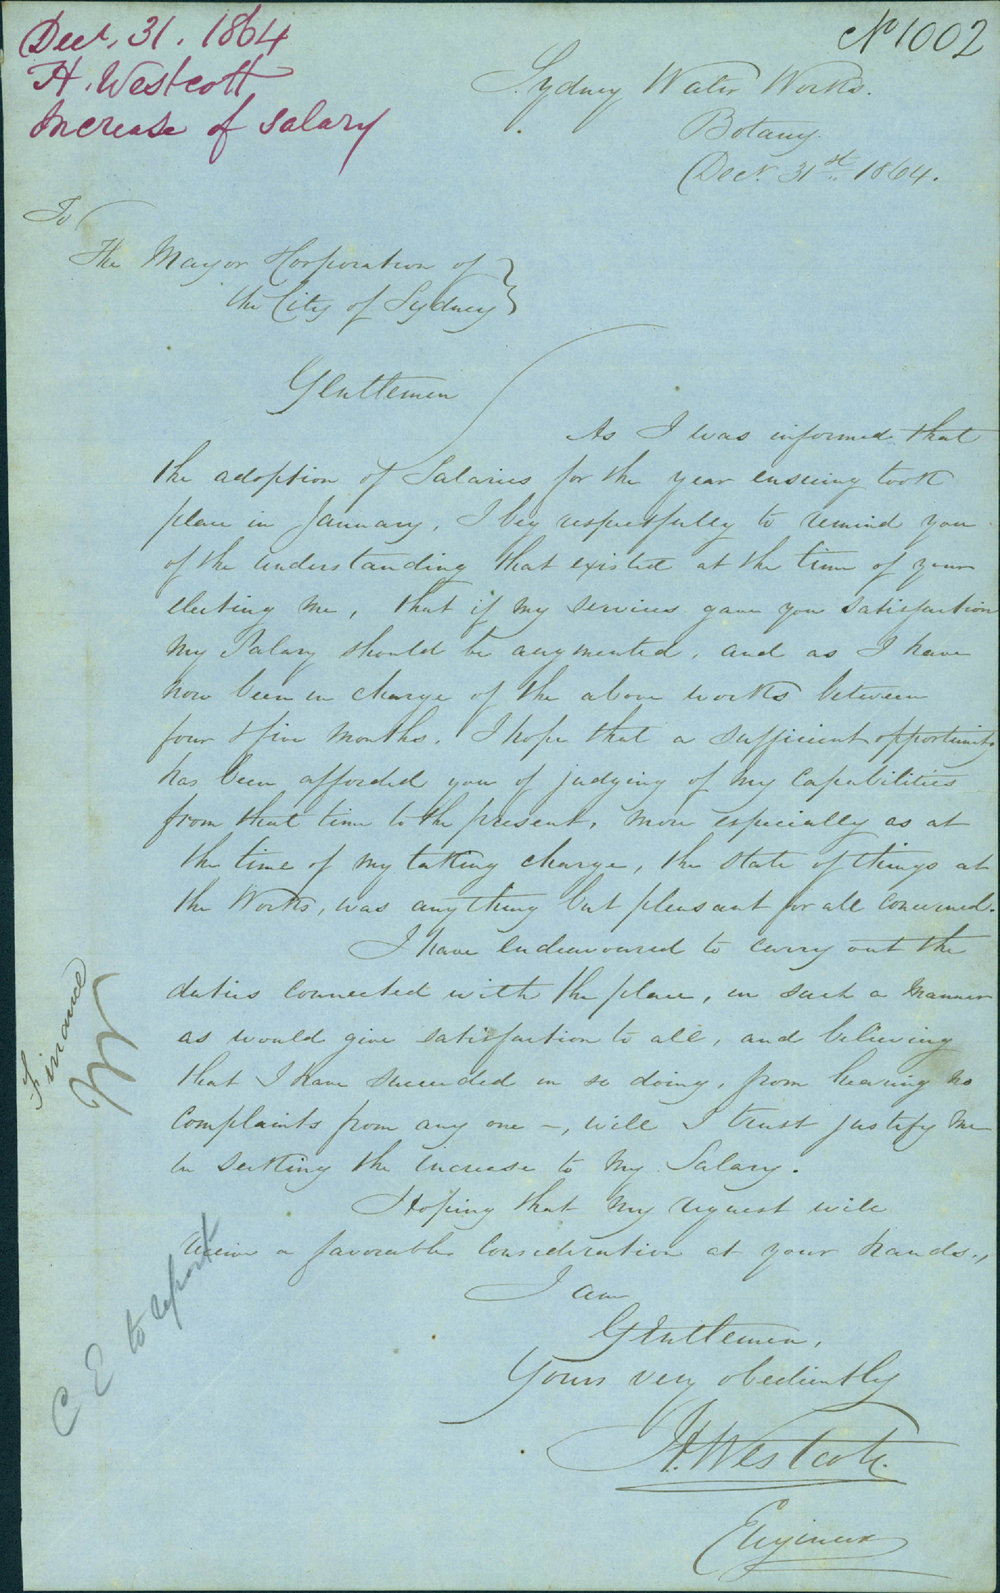 Decr. 31. 1864
H. Westcott
Increase of salary
No 1002
Sydney Water Works.
Botany.
Decr. 31st 1864.
To
The Mayor & Corporation of
the City of Sydney
Gentlemen
As I was informed that
the adoption of Salaries for the year ensuing took
place in January, I beg respectfully to remind you
of the understanding that existed at the time of your
electing me, that if my services gave you satisfaction
my Salary should be augmented, and as I have
now been in charge of the above works between
four & five months. I hope that a sufficient opportunity
has been afforded you of judging of my capabilities
from that time to the present, more especially as at
the time of my taking charge, the state of things at
the Works, was anything but pleasant for all concerned.
I have endeavoured to carry out the
duties connected with the place, in such a manner
as would give satisfaction to all, and believing
that I have succeeded in so doing, from hearing no
complaints from any one –, will I trust justify me
in seeking the increase to my Salary.
Hoping that my request will
receive a favorable consideration at your hands.,
I am
Gentlemen,
Yours very obediently
H. Westcott.
Engineer
Finance
C E to report